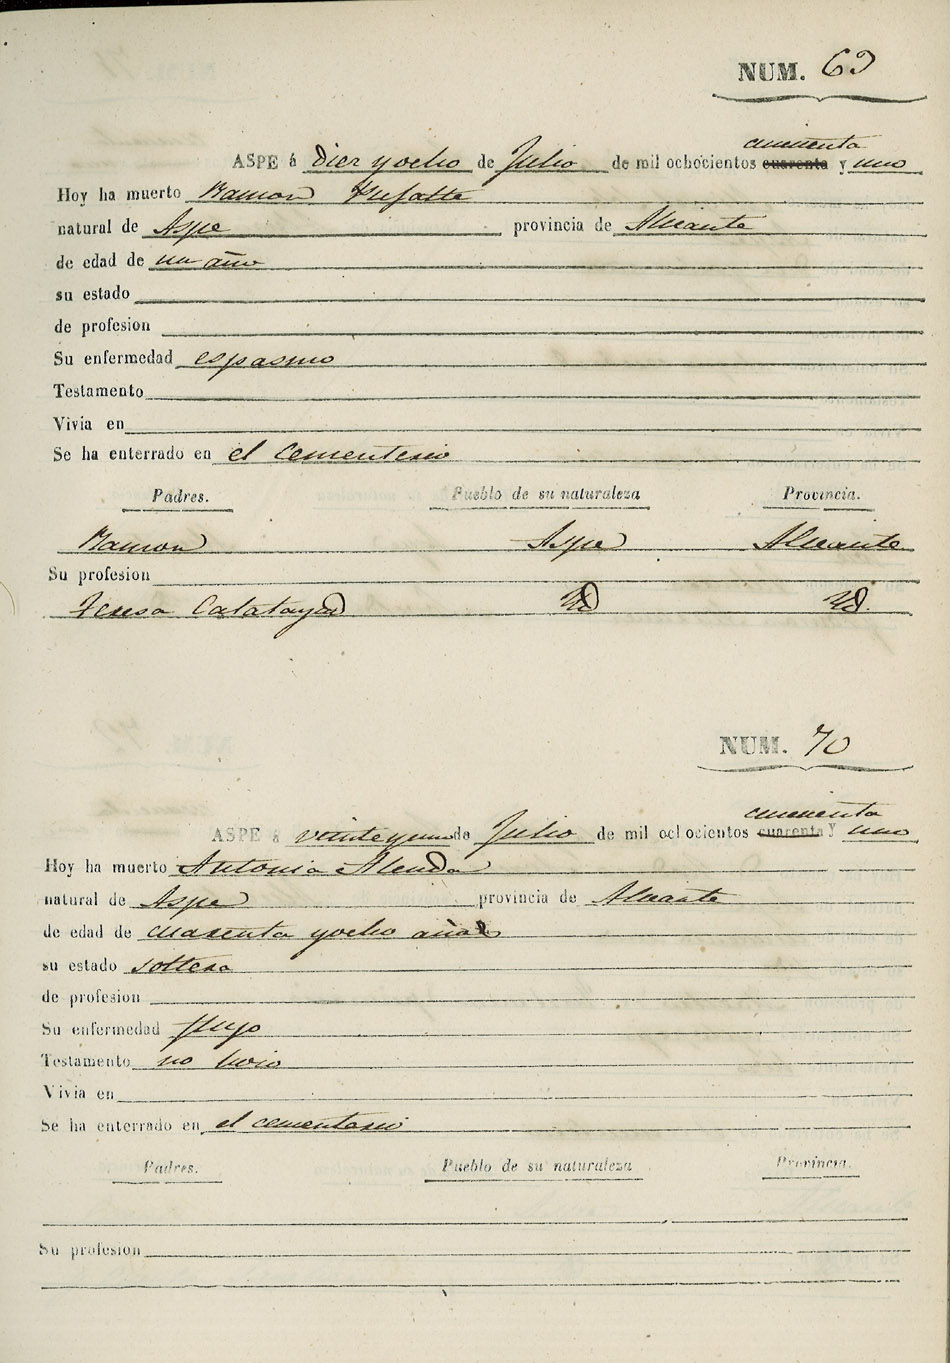 NUM. 69
cincuenta
ASPE á diez y ocho de Julio de mil ochocientos cuarenta y uno
Hoy ha muerto Ramon
natural de Aspe provincia de Alicante
de edad de un año
su estado
de profesion
Su enfermedad espasmo
Testamento
Vivia en
Se ha enterrado en el Cementerio
Padres. Pueblo de su naturaleza Provincia.
Ramon Aspe Alicante
Su profesion
Teresa Calatayud Id Id.
NUM. 70
cincuenta
ASPE á veinte y uno de Julio de mil ochocientos cuarenta y uno
Hoy ha muerto Antonia Alenda
natural de Aspe provincia de Alicante
de edad de cuarenta y ocho años
su estado soltera
de profesion
Su enfermedad flujo
Testamento no hizo
Vivia en
Se ha enterrado en el cementerio
Padres. Pueblo de su naturaleza Provincia.
Su profesion